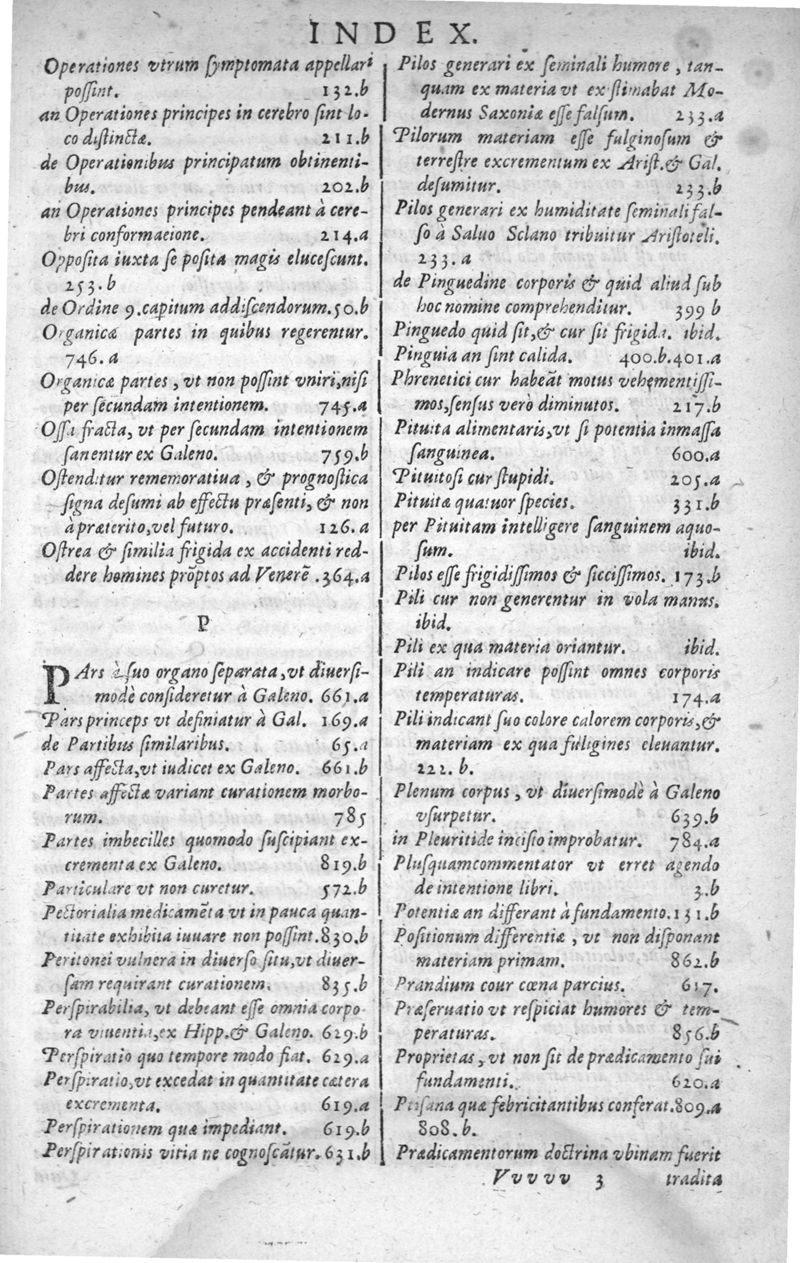 INDEX.
Operationes vtrum ſymptomata appellari
poſſint. 132.b
an Operationes principes in cerebro ſint lo-
co diſtinctæ. 211.b
de Operationibus principatum obtinenti-
bus. 202.b
an Operationes principes pendeant à cere-
bri conformacione. 214.a
Oppoſita iuxta ſe poſita magis eluceſcunt.
253.b
de Ordine 9.capitum addiſcendorum.50.b
Organicæ partes in quibus regerentur.
746.a
Organicæ partes, vt non poſſint vniri,niſi
per ſecundam intentionem. 745.a
Oſſa fracta, vt per ſecundam intentionem
ſanentur ex Galeno. 759.b
Oſtenditur rememoratiua, & prognoſtica
ſigna deſumi ab effectu præſenti, & non
à præterito,vel futuro. 126.a
Oſtrea & ſimilia frigida ex accidenti red-
dere homines prōptos ad Venerē .364.a
P
PArs à ſuo organo ſeparata,vt diuerſi-
modè conſideretur à Galeno. 661.a
Pars princeps vt definiatur à Gal. 169.a
de Partibus ſimilaribus. 65.a
Pars affecta,vt iudicet ex Galeno. 661.b
Partes affectæ variant curationem morbo-
rum. 785
Partes imbecilles quomodo ſuſcipiant ex-
crementa ex Galeno. 819.b
Particulare vt non curetur. 572.b
Pectorialia medicamēta vt in pauca quan-
titate exhibita iuuare non poſſint.830.b
Peritonei vulnera in diuerſo ſitu,vt diuer-
ſam requirant curationem. 835.b
Perſpirabilia, vt debeant eſſe omnia corpo
ra viuentia,ex Hipp.& Galeno. 629.b
Perſpiratio quo tempore modo fiat. 629.a
Perſpiratio,vt excedat in quantitate cætera
excrementa. 619.a
Perſpirationem quæ impediant. 619.b
Perſpirationis vitia ne cognoſcātur. 631.b
Pilos generari ex ſeminali humore, tan-
quam ex materia vt exiſtimabat Mo-
dernus Saxoniæ eſſe falſum. 233.a
Pilorum materiam eſſe fulginoſum &
terreſtre excrementum ex Ariſt.& Gal.
deſumitur. 233.b
Pilos generari ex humiditate ſeminali fal-
ſo à Saluo Sclano tribuitur Ariſtoteli.
233.a
de Pinguedine corporis & quid aliud ſub
hoc nomine comprehenditur. 399 b
Pinguedo quid ſit,& cur ſit frigida. ibid.
Pinguia an ſint calida. 400.b.401.a
Phrenetici cur habeāt motus vehementiſſi-
mos,ſenſus verò diminutos. 217.b
Pituita alimentaris,vt ſi potentia inmaſſa
ſanguinea. 600.a
Pituitoſi cur ſtupidi. 205.a
Pituitæ quatuor ſpecies. 331.b
per Pituitam intelligere ſanguinem aquo-
ſum. ibid.
Pilos eſſe frigidiſſimos & ſicciſſimos. 173.b
Pili cur non generentur in vola manus.
ibid.
Pili ex qua materia oriantur. ibid.
Pili an indicare poſſint omnes corporis
temperaturas. 174.a
Pili indicant ſuo colore calorem corporis,&
materiam ex qua fuligines eleuantur.
222.b.
Plenum corpus, vt diuerſimodè à Galeno
vſurpetur. 639.b
in Pleuritide inciſio improbatur. 784.a
Pluſquamcommentator vt erret agendo
de intentione libri. 3.b
Potentiæ an differant à fundamento.131.b
Poſitionum differentiæ, vt non diſponant
materiam primam. 862.b
Prandium cour cœna parcius. 617.
Præſeruatio vt reſpiciat humores & tem-
peraturas. 856.b
Proprietas, vt non ſit de prædicamento ſui
fundamenti. 620.a
Ptiſana quæ febricitantibus conferat.809.a
808.b.
Prædicamentorum doctrina vbinam fuerit
Vvvvv 3 tradita